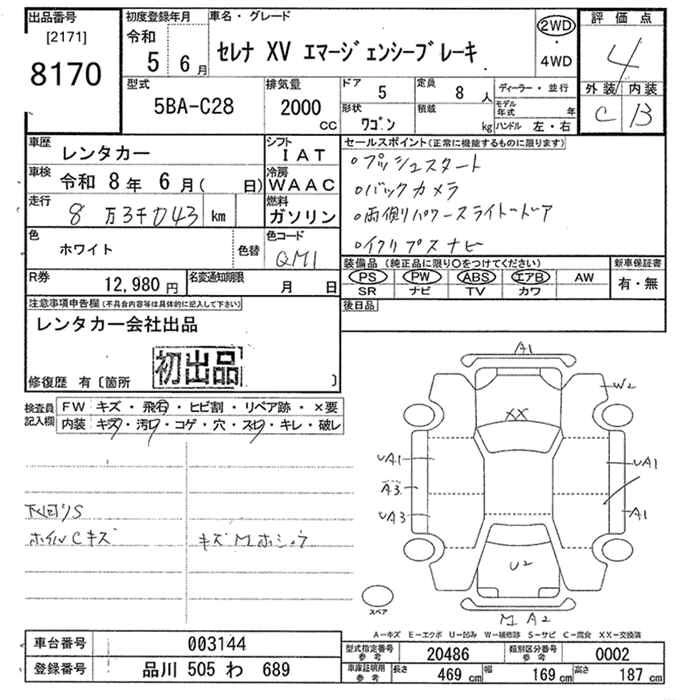 出品番号
[2171]
8170
初度登録年月
令和
5 6月
車名・グレード
セレナ XV エマージェンシーブレーキ
2WD
・
4WD
評価点
4
外装 内装
C B
型式
5BA-C28
排気量
2000
cc
ドア
5
定員
8 人
形状
ワゴン
積載
kg
ディーラー・並行
モデル年式 年
ハンドル 左・右
車歴
レンタカー
シフト
IAT
車検
令和 8年 6月( 日)
冷房
WAAC
走行
8万3千043 km
燃料
ガソリン
色
ホワイト
色替
色コード
QM1
R券
12,980円
名変通知期限
月 日
セールスポイント(正常に機能するものに限ります)
○プッシュスタート
○バックカメラ
○両側パワースライドドア
○インテリキー ナビ
装備品(純正品に限り○をつけてください)
PS PW ABS エアB AW
SR ナビ TV カワ
新車保証書
有・無
後日品
注意事項申告欄(不具合内容等は具体的に記入して下さい)
レンタカー会社出品
初出品
修復歴 有〔箇所 〕
検査員記入欄
FW キズ・飛石・ヒビ割・リペア跡・×要
内装 キズ・汚れ・コゲ・穴・スレ・キレ・破レ
下回りS
ホイルCキズ
キズMホシュウ
A1
W2
XX
UA1
A3
UA3
UA1
A1
U2
MA2
スペア
A-キズ E-エクボ U-凹み W-補修跡 S-サビ C-腐食 XX-交換済
車台番号 003144
登録番号 品川 505 わ 689
型式指定番号 参考 20486
類別区分番号 参考 0002
車庫証明用 参考 長さ 469 cm 幅 169 cm 高さ 187 cm